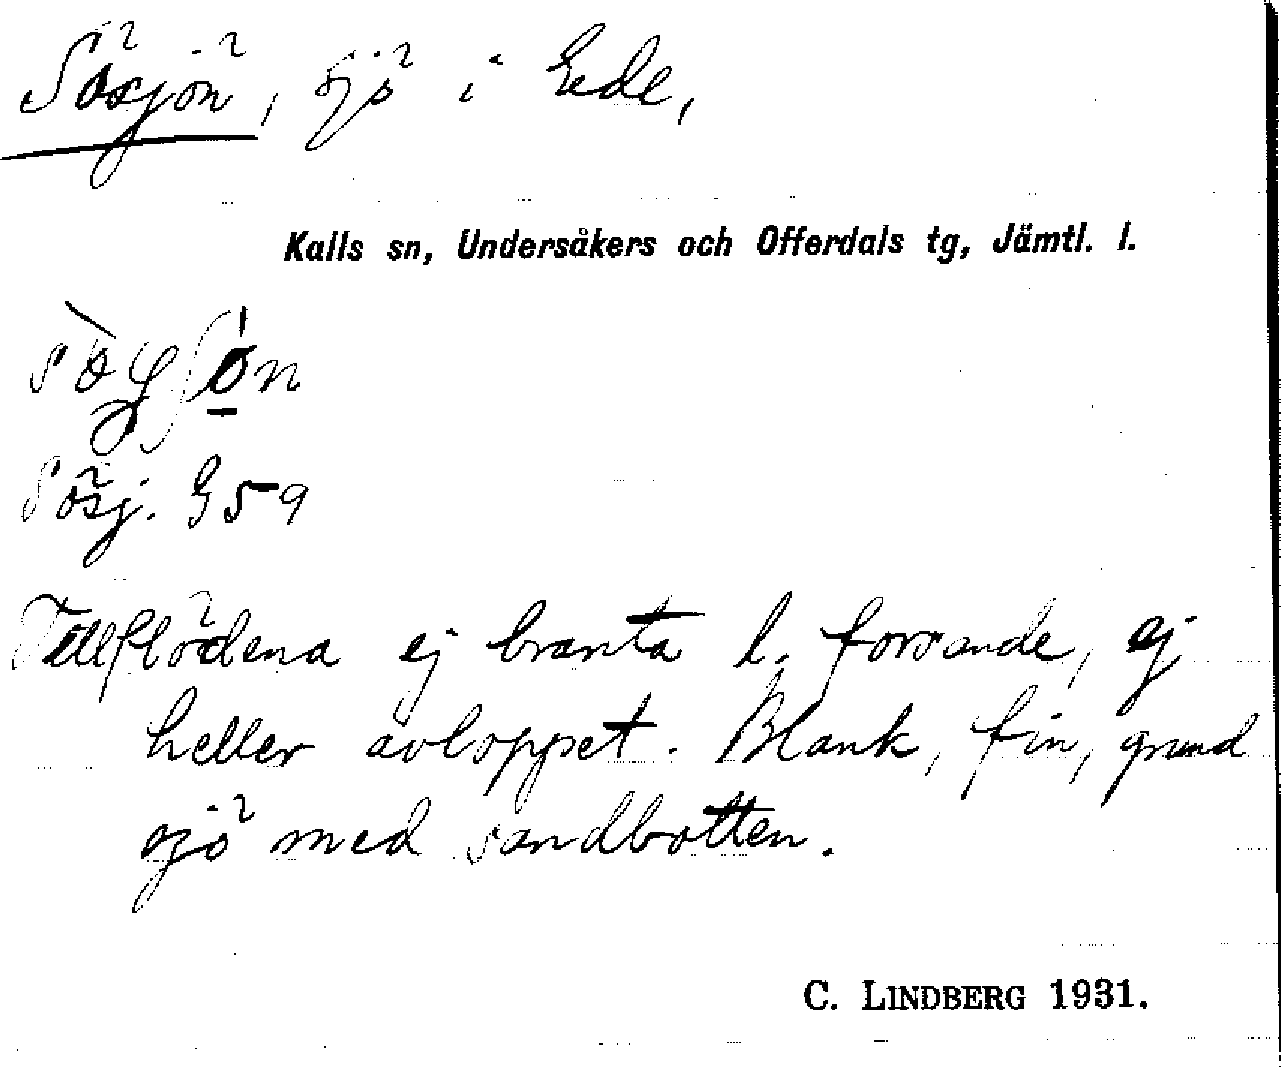 Sösjön, sjö i Ede,
Kalls sn, Undersåkers och Offerdals tg, Jämtl. l.
Sösj. G59
Tillflödena ej branta l. forsande, ej
heller avloppet. Blank, fin, grund
sjö med sandbotten.
C. LINDBERG 1931.